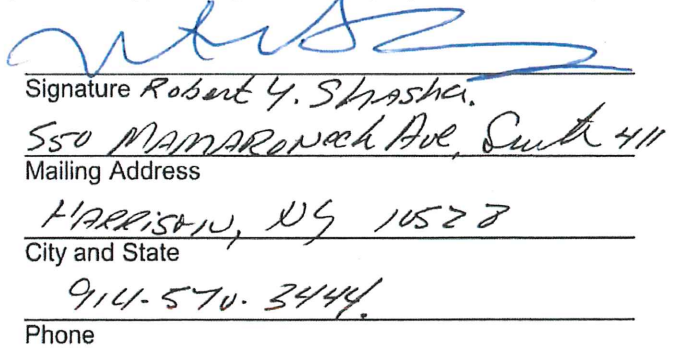 Signature Robert Y. Shasha.
550 MAMARONeck Ave, Suite 411
Mailing Address
HARRISON, NY 10528
City and State
914-570-3444.
Phone